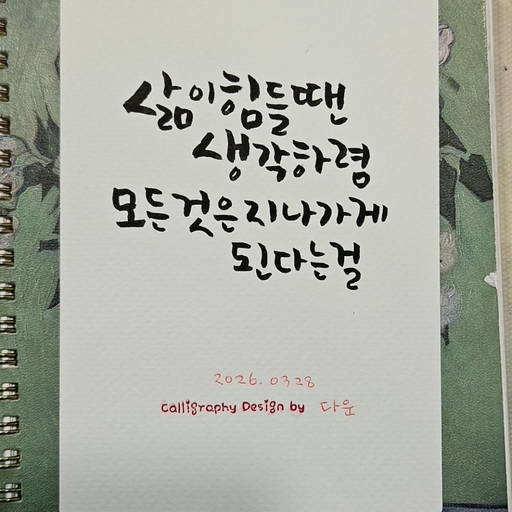 삶이힘들땐
생각하렴
모든것은지나가게
된다는걸
2026.03.28
Calligraphy Design by 다운